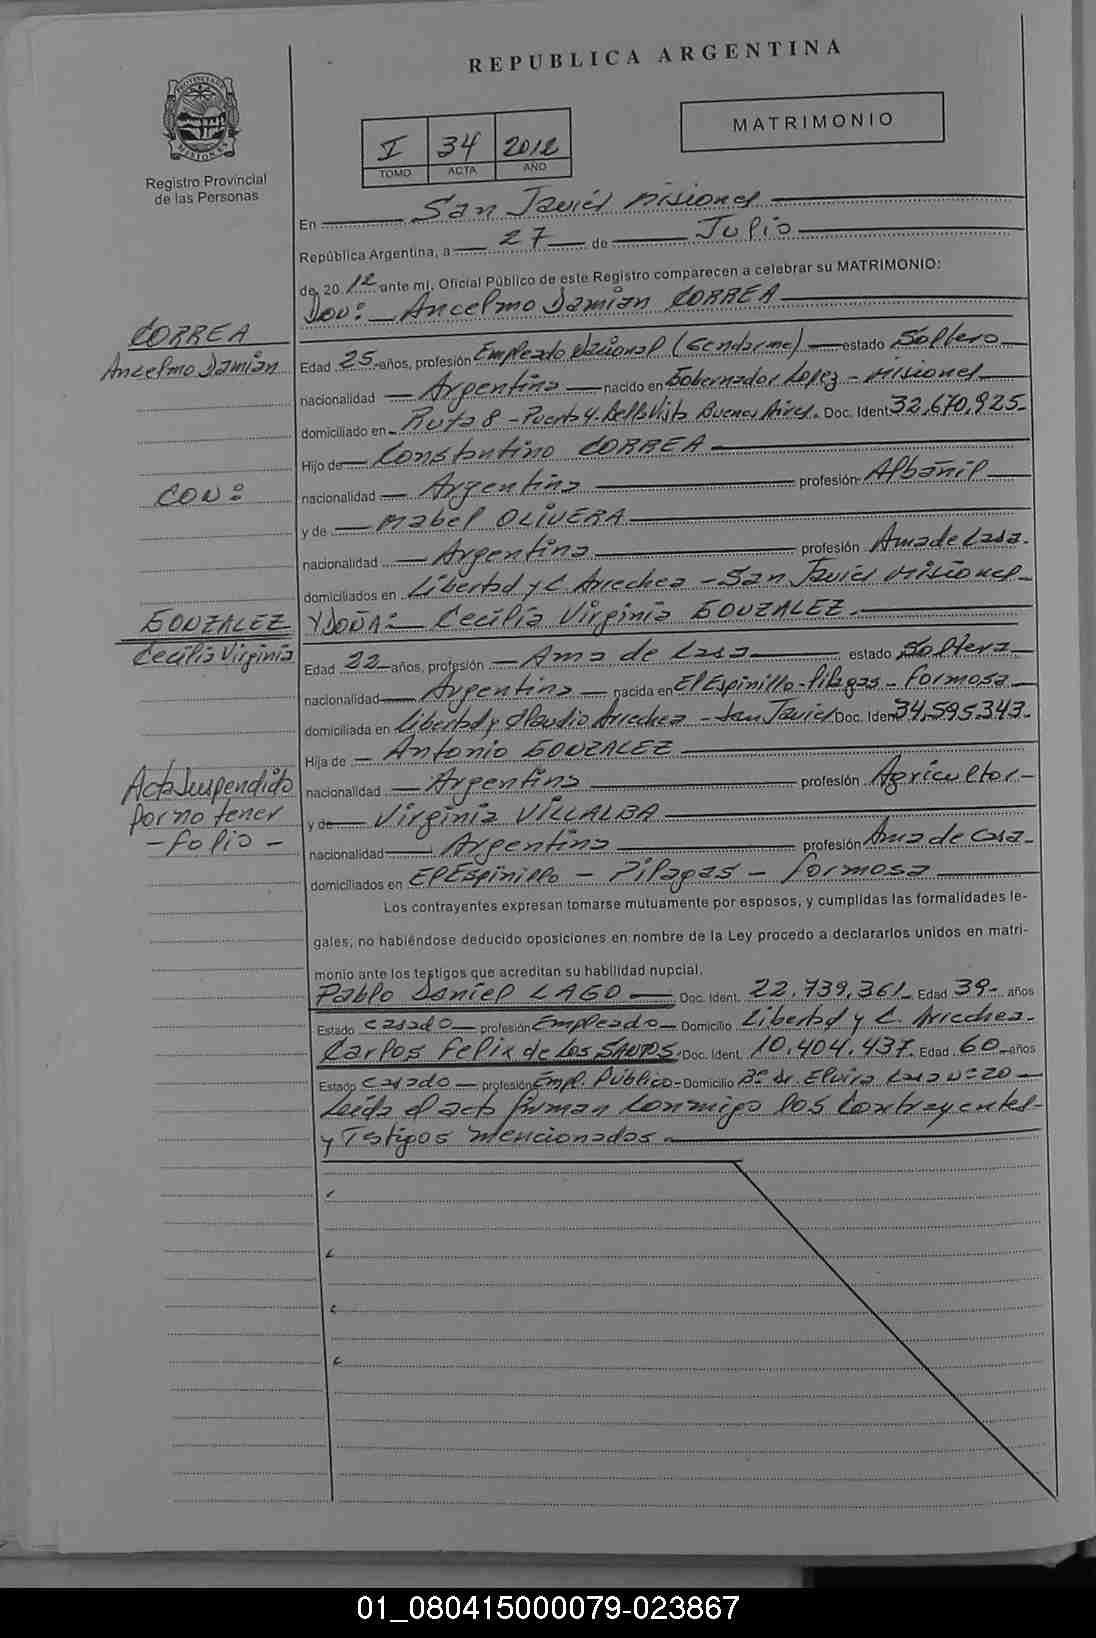 REPUBLICA ARGENTINA
PROVINCIA DE MISIONES
Registro Provincial
de las Personas
I 34 2012
TOMO ACTA AÑO
MATRIMONIO
En San Javier Misiones
República Argentina, a 27 de Julio
de 2012 ante mi, Oficial Público de este Registro comparecen a celebrar su MATRIMONIO:
Don: Ancelmo Damian CORREA
CORREA
Ancelmo Damián
Edad 25 años, profesión Empleado Nacional (Gendarme) estado Soltero
nacionalidad Argentina nacido en Gobernador Lopez - Misiones
domiciliado en Ruta 8 - Puerta 4. Bella Vista Buenos Aires. Doc. Ident 32.670.925-
Hijo de Constantino CORREA
CON:
nacionalidad Argentina profesión Albañil
y de Mabel OLIVERA
nacionalidad Argentina profesión Ama de Casa.
domiciliados en Libertad y C. Arrechea - San Javier Misiones
GONZALEZ
Cecilia Virginia
Y DOÑA: Cecilia Virginia GONZALEZ.
Edad 22 años, profesión Ama de Casa estado Soltera
nacionalidad Argentina nacida en El Espinillo - Pilagas - Formosa
domiciliada en Libertad y Claudio Arrechea - San Javier Doc. Iden 34.595.343-
Hija de Antonio GONZALEZ
Acta Suspendida
por no tener
- folio -
nacionalidad Argentina profesión Agricultor-
y de Virginia VILLALBA
nacionalidad Argentina profesión Ama de Casa-
domiciliados en El Espinillo - Pilagas - Formosa
Los contrayentes expresan tomarse mutuamente por esposos, y cumplidas las formalidades le-
gales, no habiéndose deducido oposiciones en nombre de la Ley procedo a declararlos unidos en matri-
monio ante los testigos que acreditan su habilidad nupcial.
Pablo Daniel LAGO Doc. Ident. 22.739.361 Edad 39- años
Estado Casado profesión Empleado Domicilio Libertad y C. Arrechea.
Carlos Felix de Los SANTOS. Doc. Ident. 10.404.437. Edad 60 años
Estado Casado profesión Empl. Público - Domicilio Bº Dr. Elvira Casa Nº 20
Leída el acta firman conmigo los contrayentes
y Testigos mencionados.
01_080415000079-023867